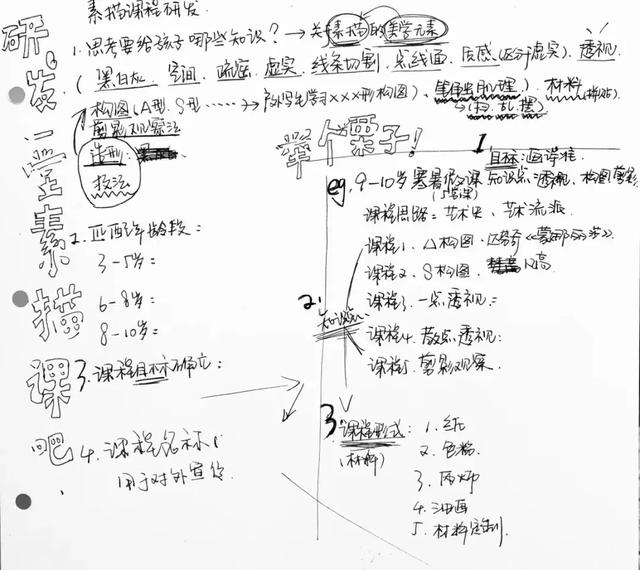 研发一堂素描课吧
素描课程研发
1. 思考要给孩子哪些知识？→关于素描的美学元素
(黑白灰、空间、疏密、虚实、线条切割、点线面、质感(区分虚实)、透视、
构图(A型、S型……→户外写生学习×××形构图)、肌理)、材料
剪影观察法
造型
技法
2. 匹配年龄段：
3-5岁：
6-8岁：
8-10岁：
3. 课程目标确立：
4. 课程名称：
用于对外宣传
举个栗子！
1
目标：画得准
eg. 9-10岁寒暑假课 知识点透视、构图剪影
(5节课)
课程思路：艺术史、艺术流派
课程1. △构图：达芬奇《蒙娜丽莎》
课程2. S构图：
课程3. 一点透视：
课程4. 散点透视：
课程5. 剪影观察.
2. 知识点
3 课程形式：
(材料)
1. 纸
2. 色粉
3. 丙烯
4. 油画
5. 材料